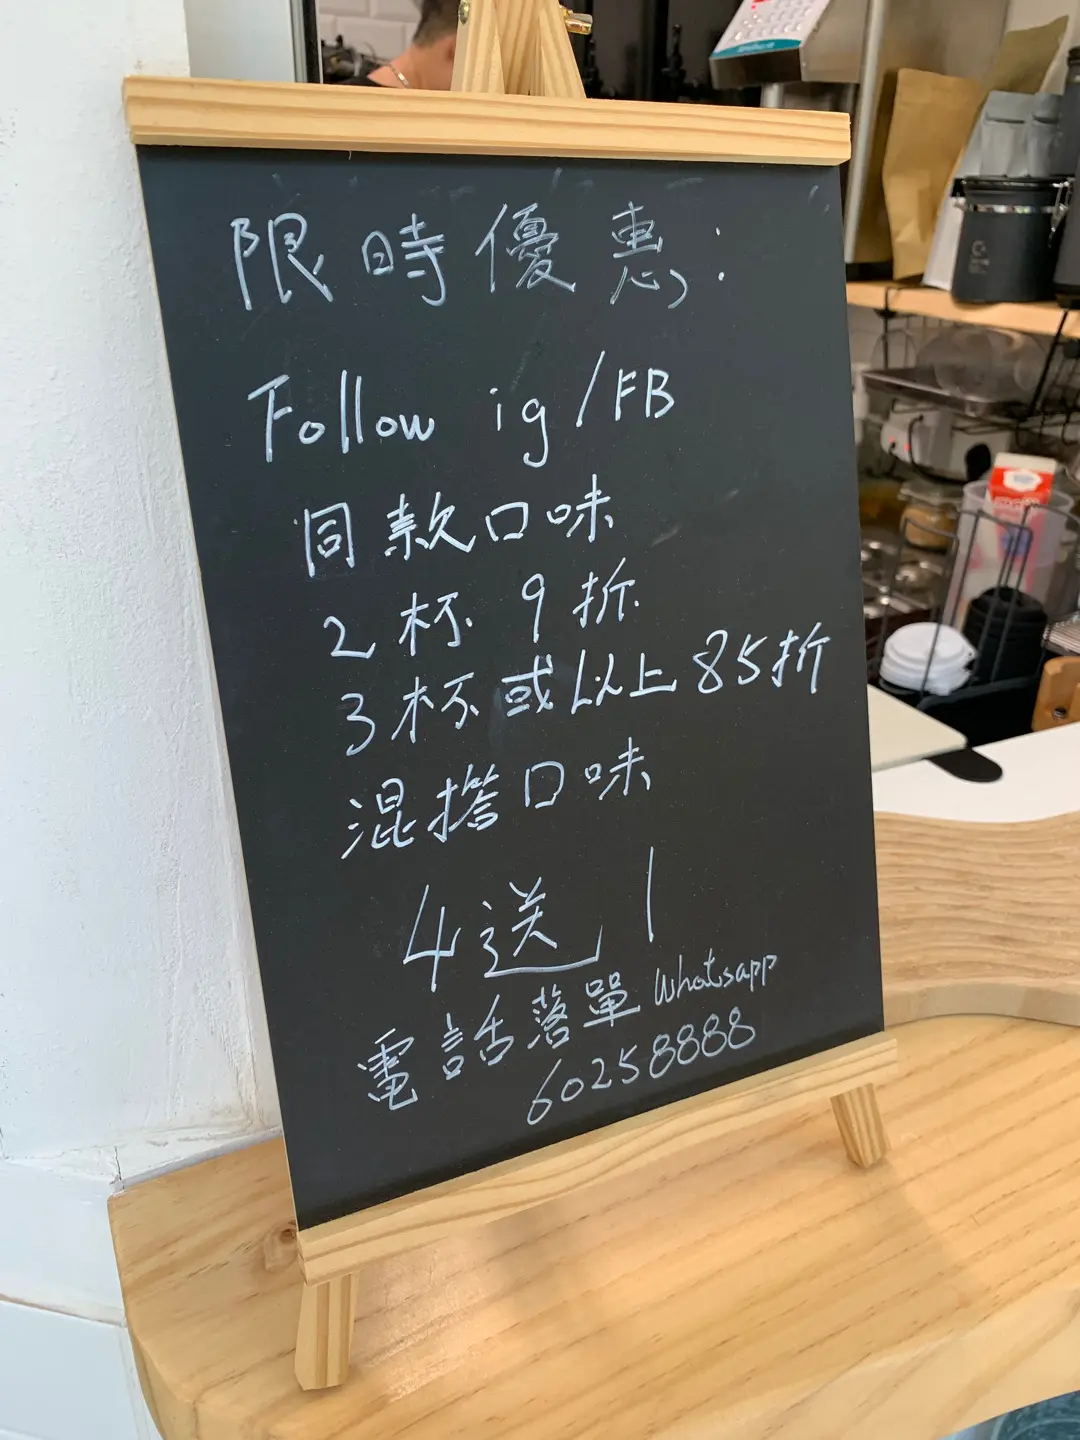 限時優惠:
Follow ig/FB
同款口味
2杯 9折
3杯或以上85折
混撘口味
4送1
電話落單 Whatsapp
60258888